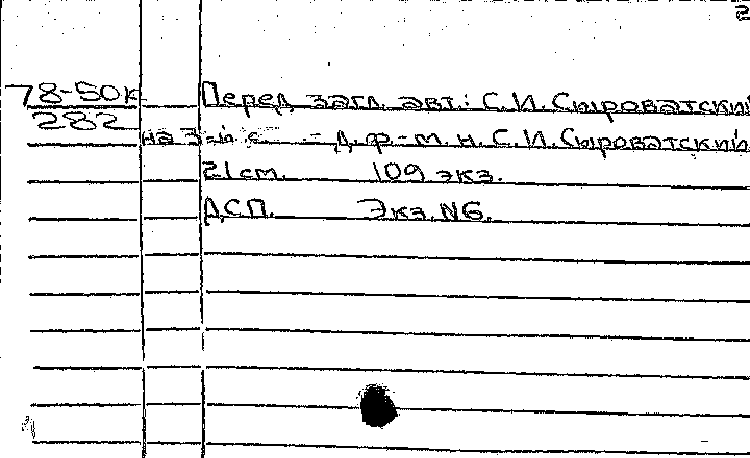 2
78-50к Перед загл. авт.: С.И. Сыроватский
282
на 3-й с. - д.ф-м.н. С.И. Сыроватский
21 см. 109 экз.
ДСП. Экз. N6.